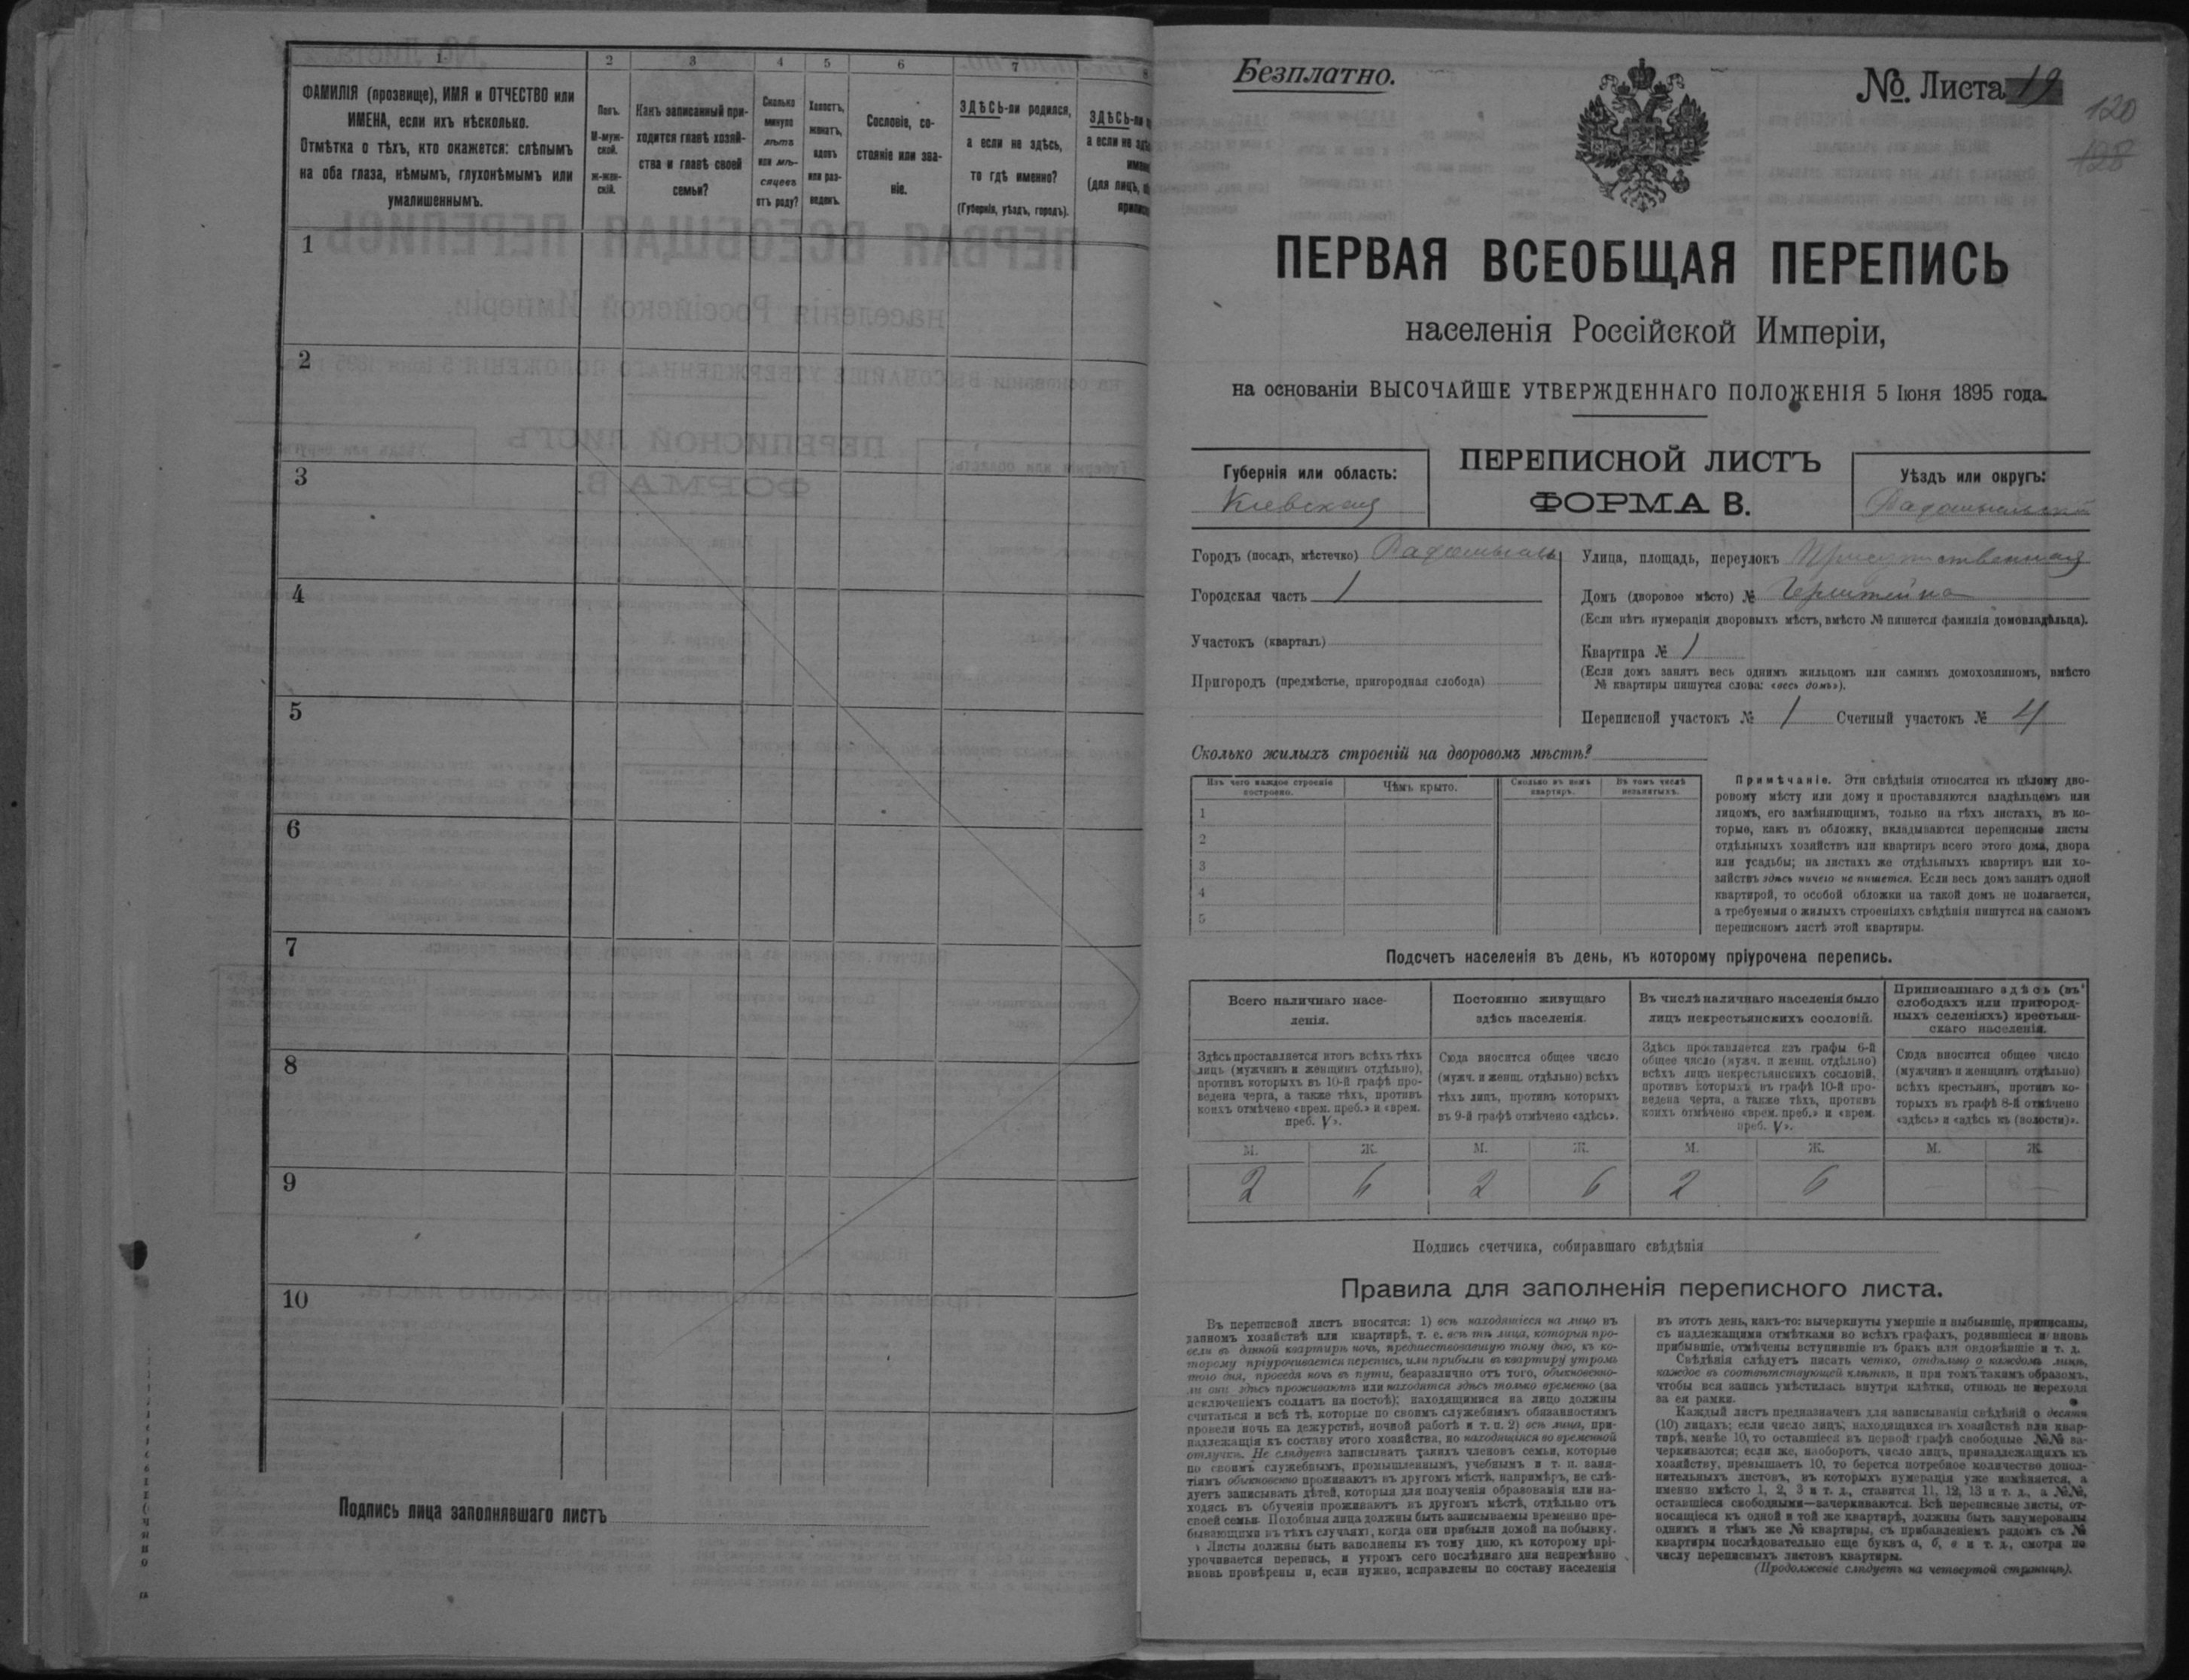 1
2
3
4
5
6
7
8
ФАМИЛІЯ (прозвище), ИМЯ и ОТЧЕСТВО или
ИМЕНА, если ихъ нѣсколько.
Отмѣтка о тѣхъ, кто окажется: слѣпымъ
на оба глаза, нѣмымъ, глухонѣмымъ или
умалишеннымъ.
Полъ.
М-муж-
ской.
Ж-жен-
скій.
Какъ записанный при-
ходится главѣ хозяй-
ства и главѣ своей
семьи?
Сколько
минуло
лѣтъ
или мѣ-
сяцевъ
отъ роду?
Холостъ,
женатъ,
вдовъ
или раз-
веденъ.
Сословіе, со-
стояніе или зва-
ніе.
ЗДѢСЬ-ли родился,
а если не здѣсь,
то гдѣ именно?
(Губернія, уѣздъ, городъ).
ЗДѢСЬ-ли
а если не
(для лицъ,
1
2
3
4
5
6
7
8
9
10
Подпись лица заполнявшаго листъ
Безплатно.
№ Листа 19
120
128
ПЕРВАЯ ВСЕОБЩАЯ ПЕРЕПИСЬ
населенія Россійской Имперіи,
на основаніи ВЫСОЧАЙШЕ УТВЕРЖДЕННАГО ПОЛОЖЕНІЯ 5 Іюня 1895 года.
Губернія или область:
Кіевская
ПЕРЕПИСНОЙ ЛИСТЪ
ФОРМА В.
Уѣздъ или округъ:
Радомысльскій
Городъ (посадъ, мѣстечко) Радомысль
Городская часть 1
Участокъ (кварталъ)
Пригородъ (предмѣстье, пригородная слобода)
Улица, площадь, переулокъ Присутственная
Домъ (дворовое мѣсто) №
(Если нѣтъ нумераціи дворовыхъ мѣстъ, вмѣсто № пишется фамилія домовладѣльца).
Квартира № 1
(Если домъ занятъ весь однимъ жильцомъ или самимъ домохозяиномъ, вмѣсто
№ квартиры пишутся слова: «весь домъ»).
Переписной участокъ № 1 Счетный участокъ № 4
Сколько жилыхъ строеній на дворовомъ мѣстѣ?
Изъ чего каждое строеніе
построено.
Чѣмъ крыто.
Сколько въ немъ
квартиръ.
Въ томъ числѣ
незанятыхъ.
1
2
3
4
5
Примѣчаніе. Эти свѣдѣнія относятся къ цѣлому дво-
ровому мѣсту или дому и проставляются владѣльцемъ или
лицомъ, его замѣняющимъ, только на тѣхъ листахъ, въ ко-
торые, какъ въ обложку, вкладываются переписные листы
отдѣльныхъ хозяйствъ или квартиръ всего этого дома, двора
или усадьбы; на листахъ же отдѣльныхъ квартиръ или хо-
зяйствъ здѣсь ничего не пишется. Если весь домъ занятъ одной
квартирой, то особой обложки на такой домъ не полагается,
а требуемыя о жилыхъ строеніяхъ свѣдѣнія пишутся на самомъ
переписномъ листѣ этой квартиры.
Подсчетъ населенія въ день, къ которому пріурочена перепись.
Всего наличнаго насе-
ленія.
Постоянно живущаго
здѣсь населенія.
Въ числѣ наличнаго населенія было
лицъ некрестьянскихъ сословій.
Приписаннаго здѣсь (въ
слободахъ или пригород-
ныхъ селеніяхъ) крестьян-
скаго населенія.
Здѣсь проставляется итогъ всѣхъ тѣхъ
лицъ (мужчинъ и женщинъ отдѣльно),
противъ которыхъ въ 10-й графѣ про-
ведена черта, а также тѣхъ, противъ
коихъ отмѣчено «врем. преб.» и «врем.
преб. V».
Сюда вносится общее число
(мужч. и женщ. отдѣльно) всѣхъ
тѣхъ лицъ, противъ которыхъ
въ 9-й графѣ отмѣчено «здѣсь».
Здѣсь проставляется изъ графы 6-й
общее число (мужч. и женщ. отдѣльно)
всѣхъ лицъ некрестьянскихъ сословій,
противъ которыхъ въ графѣ 10-й про-
ведена черта, а также тѣхъ, противъ
коихъ отмѣчено «врем. преб.» и «врем.
преб. V».
Сюда вносится общее число
(мужчинъ и женщинъ отдѣльно)
всѣхъ крестьянъ, противъ ко-
торыхъ въ графѣ 8-й отмѣчено
«здѣсь» и «здѣсь къ (волости)».
М. Ж. М. Ж. М. Ж. М. Ж.
2 6 2 6 2 6 — —
Подпись счетчика, собиравшаго свѣдѣнія
Правила для заполненія переписного листа.
Въ переписной листъ вносятся: 1) всѣ находящіеся на лицо въ
данномъ хозяйствѣ или квартирѣ, т. е. всѣ тѣ лица, которыя про-
вели въ данной квартирѣ ночь, предшествовавшую тому дню, къ ко-
торому пріурочивается перепись, или прибыли въ квартиру утромъ
того дня, проведя ночь въ пути, безразлично отъ того, обыкновенно-
ли они здѣсь проживаютъ или находятся здѣсь только временно (за
исключеніемъ солдатъ на постоѣ); находящимися на лицо должны
считаться и всѣ тѣ, которые по своимъ служебнымъ обязанностямъ
провели ночь на дежурствѣ, ночной работѣ и т. п. 2) всѣ лица, при-
надлежащія къ составу этого хозяйства, но находящіяся во временной
отлучкѣ. Не слѣдуетъ записывать такихъ членовъ семьи, которые
по своимъ служебнымъ, промышленнымъ, учебнымъ и т. п. заня-
тіямъ обыкновенно проживаютъ въ другомъ мѣстѣ, напримѣръ, не слѣ-
дуетъ записывать дѣтей, которыя для полученія образованія или на-
ходясь въ обученіи проживаютъ въ другомъ мѣстѣ, отдѣльно отъ
своей семьи. Подобныя лица должны быть записываемы временно пре-
бывающими въ тѣхъ случаяхъ, когда они прибыли домой на побывку.
Листы должны быть заполнены къ тому дню, къ которому прі-
урочивается перепись, и утромъ сего послѣдняго дня непремѣнно
вновь провѣрены и, если нужно, исправлены по составу населенія
въ этотъ день, какъ-то: вычеркнуты умершіе и выбывшіе, приписаны,
съ надлежащими отмѣтками во всѣхъ графахъ, родившіеся и вновь
прибывшіе, отмѣчены вступившіе въ бракъ или овдовѣвшіе и т. д.
Свѣдѣнія слѣдуетъ писать четко, отдѣльно о каждомъ лицѣ,
каждое въ соотвѣтствующей клѣткѣ, и при томъ такимъ образомъ,
чтобы вся запись умѣстилась внутри клѣтки, отнюдь не переходя
за ея рамки.
Каждый листъ предназначенъ для записыванія свѣдѣній о десяти
(10) лицахъ; если число лицъ, находящихся въ хозяйствѣ или квар-
тирѣ, менѣе 10, то оставшіеся въ первой графѣ свободные №№ за-
черкиваются; если же, наоборотъ, число лицъ, принадлежащихъ къ
хозяйству, превышаетъ 10, то берется потребное количество допол-
нительныхъ листовъ, въ которыхъ нумерація уже измѣняется, а
именно вмѣсто 1, 2, 3 и т. д., ставится 11, 12, 13 и т. д., а №№,
оставшіеся свободными—зачеркиваются. Всѣ переписные листы, от-
носящіеся къ одной и той же квартирѣ, должны быть занумерованы
однимъ и тѣмъ же № квартиры, съ прибавленіемъ рядомъ съ №
квартиры послѣдовательно еще буквъ а, б, в и т. д., смотря по
числу переписныхъ листовъ квартиры.
(Продолженіе слѣдуетъ на четвертой страницѣ).